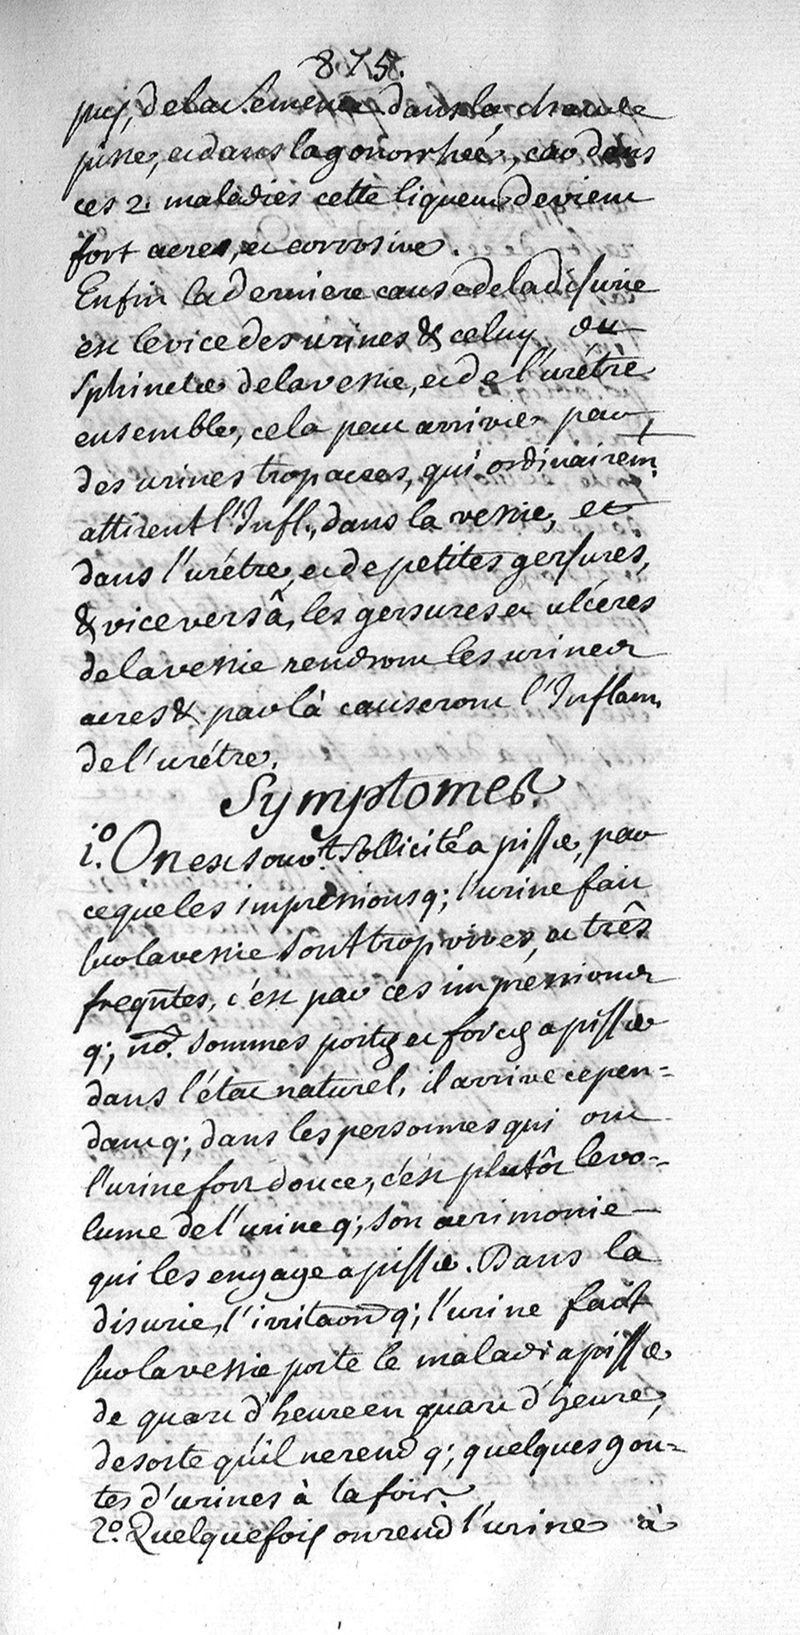 875.
pus, de la semence dans la chaude
pisse, et dans la gonorrhée, car dans
ces 2. maladies cette liqueur devient
fort acres, et corrosive.
Enfin la derniere cause de la disurie
est le vice des urines & celuy du
sphincter de la vessie, et de l'urétre
ensemble, cela peut arriver par
des urines trop acres, qui ordinairemt.
attirent l'Infl., dans la vessie, et
dans l'urétre, et de petites gersures,
& vice versâ, les gersures et ulcéres
de la vessie rendront les urines
acres & par là causeront l'Inflam.
de l'urétre.
Symptomes.
1.º On est souvt. sollicité a pisser, par
ce que les impressions q; l'urine fait
sur la vessie sont trop vives, et três
freqntes, c'est par ces impressions
q; nõ. sommes portés et forcés a pisser
dans l'état naturel, il arrive cepen=
dant q; dans les personnes qui ont
l'urine fort douce, c'ést plutôt le vo=
lume de l'urine q; son acrimonie
qui les engage a pisser. Dans la
disurie, l'irritaon q; l'urine fait
sur la vessie porte le malade a pisser
de quart d'heure en quart d'heure,
de sorte qu'il ne rend q; quelques gou=
tes d'urines à la fois.
2.º Quelquefois on rend l'urine à